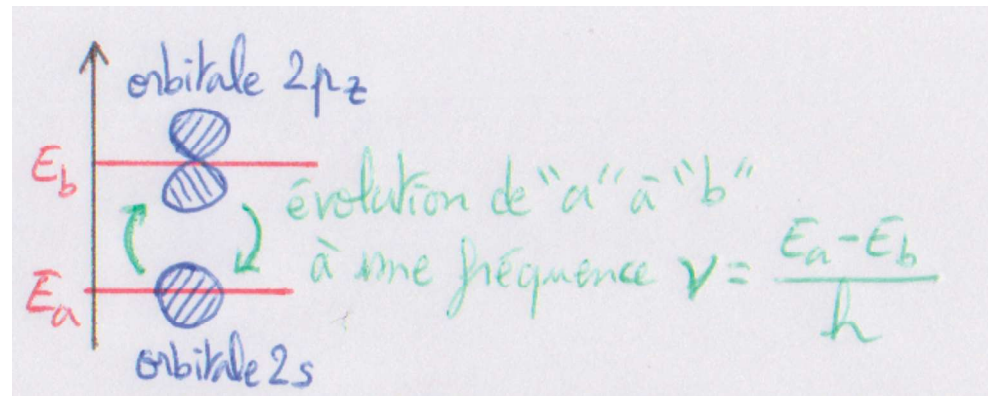 orbitale 2pz
Eb
évolution de "a" à "b"
à une fréquence ν = Ea-Eb
h
Ea
orbitale 2s